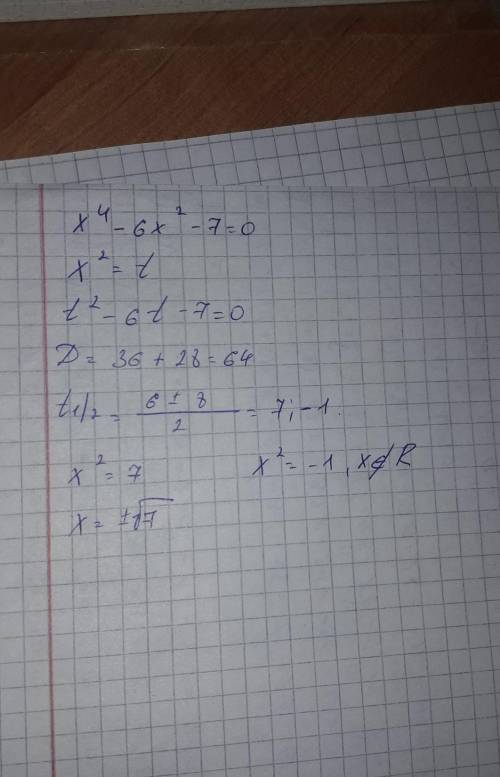 x⁴ - 6x² - 7 = 0
x² = t
t² - 6t - 7 = 0
D = 36 + 28 = 64
t1/2 = (6 ± 8)/2 = 7; -1.
x² = 7    x² = -1, x∉R
x = ±√7